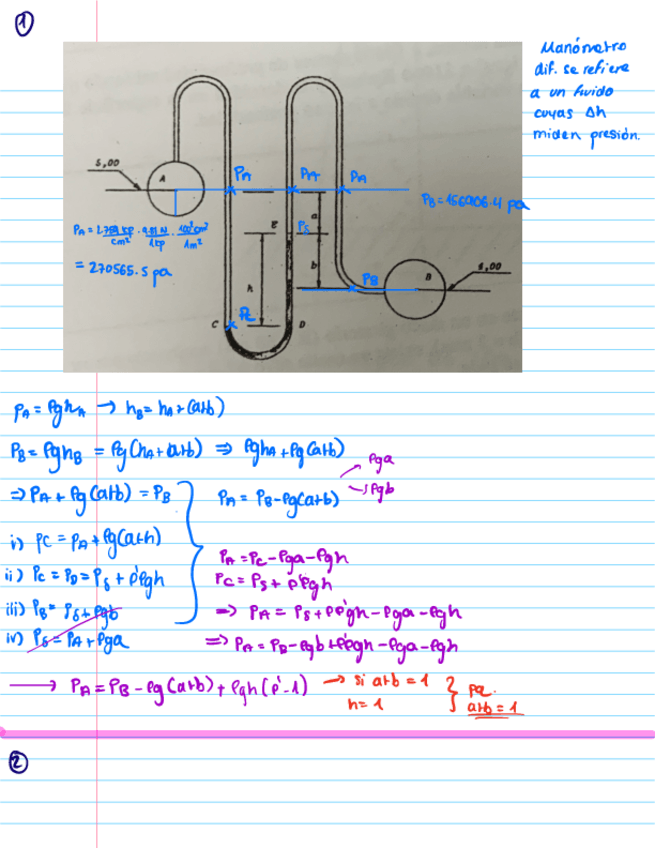 ①
Manómetro
dif. se refiere
a un fluido
cuyas Δh
miden presión.
5,00
A
PA
PA
PA
PB = 156906.4 pa
a
E
Pδ
b
h
PB
B
4,00
= 270565.5 pa
C
Pc
D
PA = ρghA → hB = hA + (a+b)
PB = ρghB = ρg(hA + a+b) ⇒ ρghA + ρg(a+b)
⇒ PA + ρg(a+b) = PB
PA = PB - ρg(a+b)
ρga
ρgb
i) Pc = PA + ρg(a+h)
ii) Pc = PD = Pδ + ρ'ρgh
iii) PB = Pδ + ρgb
iv) Pδ = PA + ρga
PA = Pc - ρga - ρgh
Pc = Pδ + ρ'ρgh
⇒ PA = Pδ + ρρ'gh - ρga - ρgh
⇒ PA = PB - ρgb + ρ'ρgh - ρga - ρgh
→ PA = PB - ρg(a+b) + ρgh(ρ'-1)
→ si a+b = 1
h = 1
a+b = 1
②